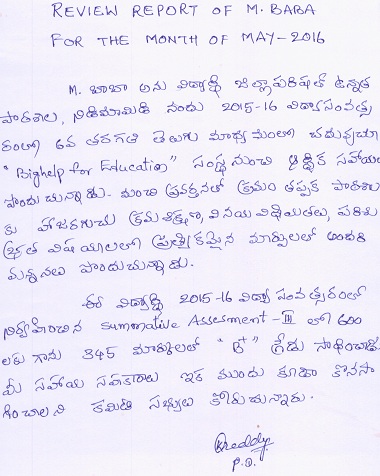 REVIEW REPORT OF M. BABA
FOR THE MONTH OF MAY-2016
M. బాబా అను విద్యార్థి జిల్లాపరిషత్ ఉన్నత
పాఠశాల, నిడిమామిడి నందు 2015-16 విద్యాసంవత్స
రంలో 6వ తరగతి తెలుగు మాధ్యమంలో చదువుచూ
"Bighelp for Education" సంస్థ నుంచి ఆర్థిక సహాయం
పొందుచున్నాడు. మంచి ప్రవర్తనతో క్రమం తప్పక పాఠశాల
కు హాజరగుచు క్రమశిక్షణ, వినయ విధేయతలు, పరిశు
భ్రత విషయాలలో ప్రత్యేకమైన మార్పులతో అందరి
మన్ననలు పొందుచున్నాడు.
ఈ విద్యార్థి 2015-16 విద్యా సంవత్సరంలో
నిర్వహించిన Summative Assesment-III లో 600
లకు గాను 345 మార్కులతో "B+" గ్రేడు సాధించాడు
మీ సహాయ సహకారాలు ఇక ముందు కూడా కొనసా
గించాలని కమిటి సభ్యులు కోరుచున్నారు.
Kreddy
P.D.